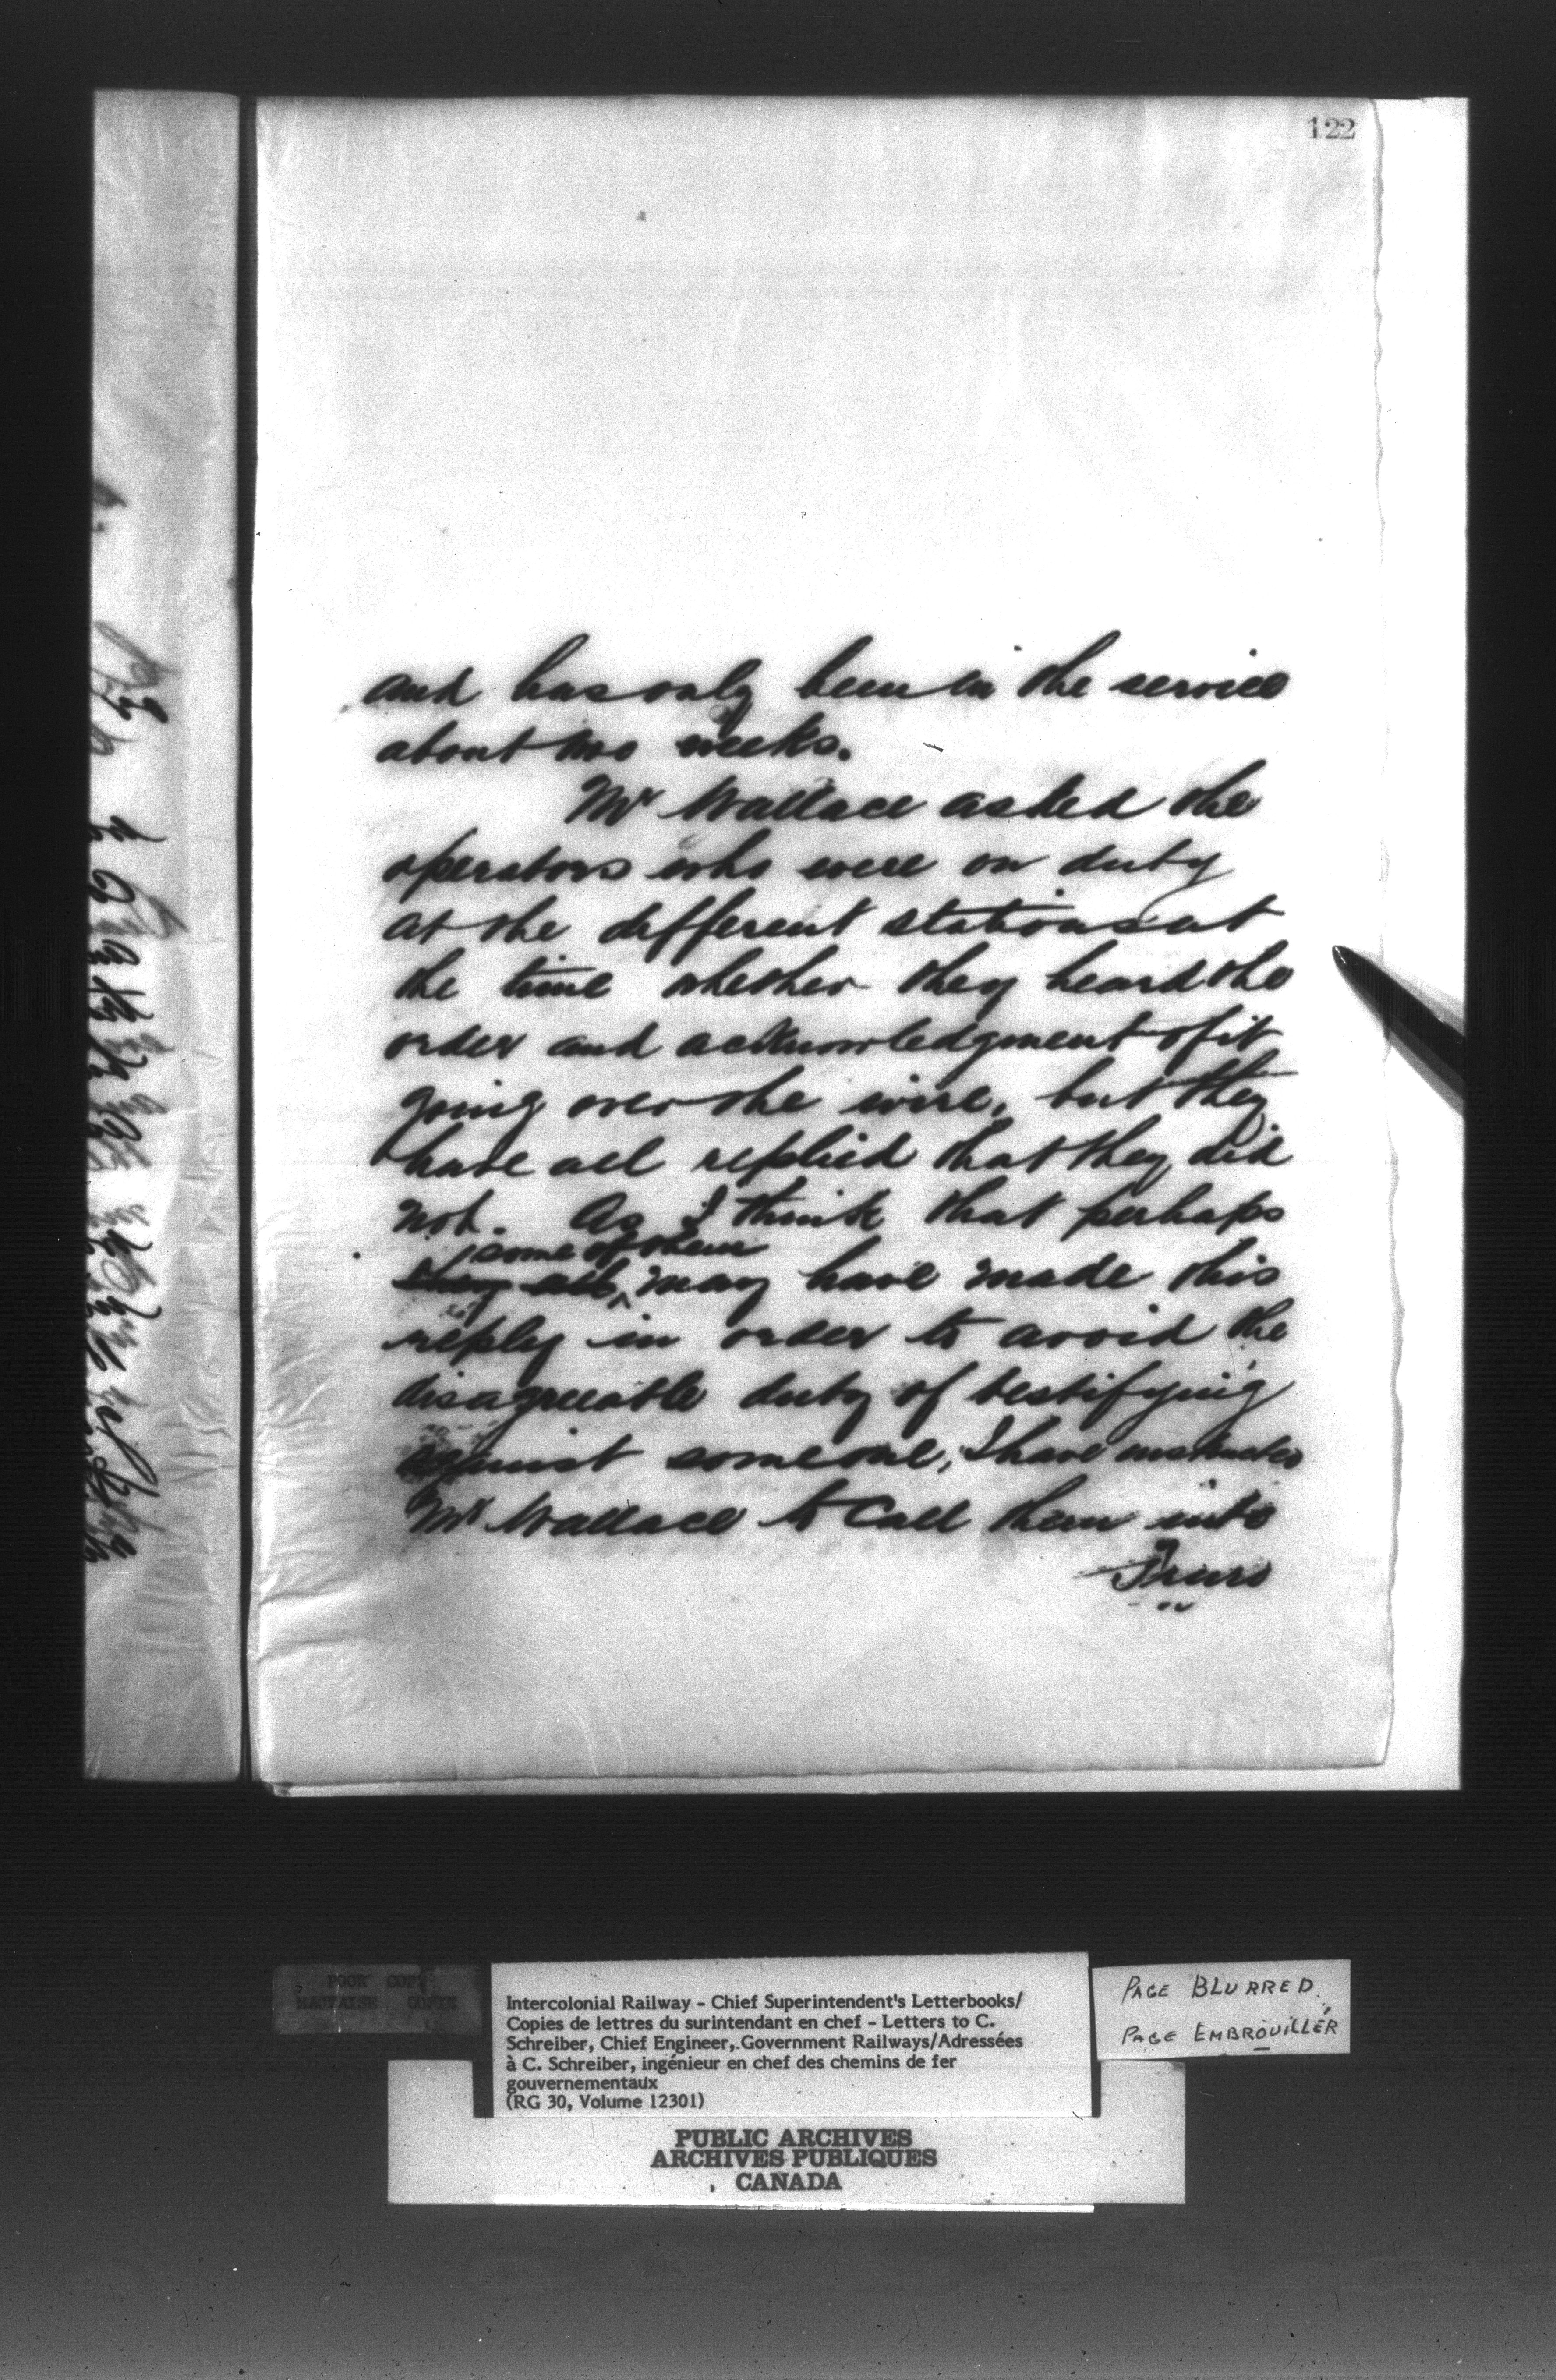 122
and has only been in the service
about two weeks.
Mr Wallace asked the
operators who were on duty
at the different stations at
the time whether they heard the
order and acknowledgment of it
going over the wire, but they
have all replied that they did
not. As I think that perhaps
some of them
they all may have made this
reply in order to avoid the
disagreeable duty of testifying
against someone, I have instructed
Mr Wallace to call them into
Truro
POOR COPY
MAUVAISE COPIE
Intercolonial Railway - Chief Superintendent's Letterbooks/
Copies de lettres du surintendant en chef - Letters to C.
Schreiber, Chief Engineer, Government Railways/Adressées
à C. Schreiber, ingénieur en chef des chemins de fer
gouvernementaux
(RG 30, Volume 12301)
PAGE BLURRED.
PAGE EMBROUILLÉR
PUBLIC ARCHIVES
ARCHIVES PUBLIQUES
CANADA